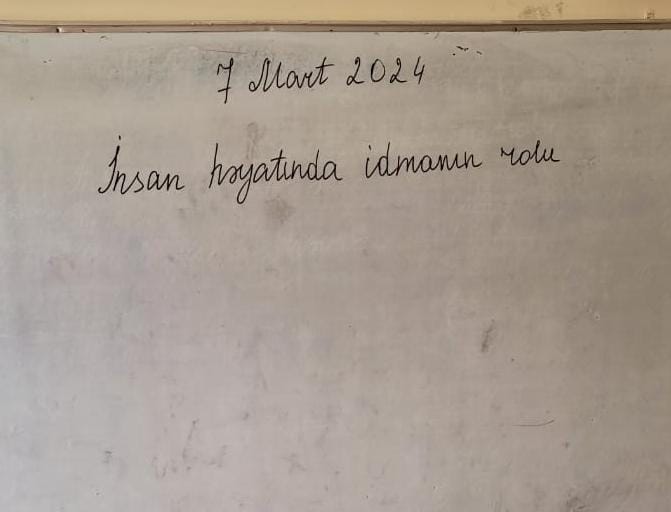 7 Mart 2024
İnsan həyatında idmanın rolu